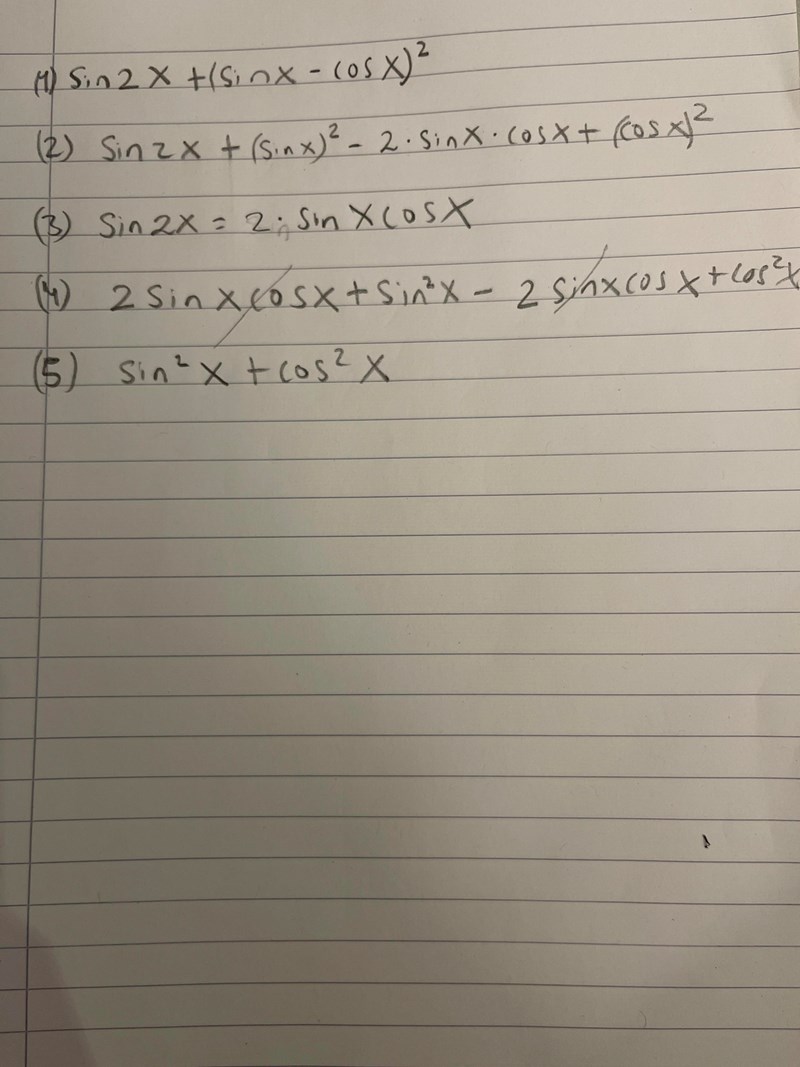 (1) sin2x + (sinx - cosx)²
(2) sin2x + (sinx)² - 2·sinx·cosx + (cosx)²
(3) sin2x = 2·sinxcosx
(4) 2sinxcosx + sin²x - 2sinxcosx + cos²x
(5) sin²x + cos²x